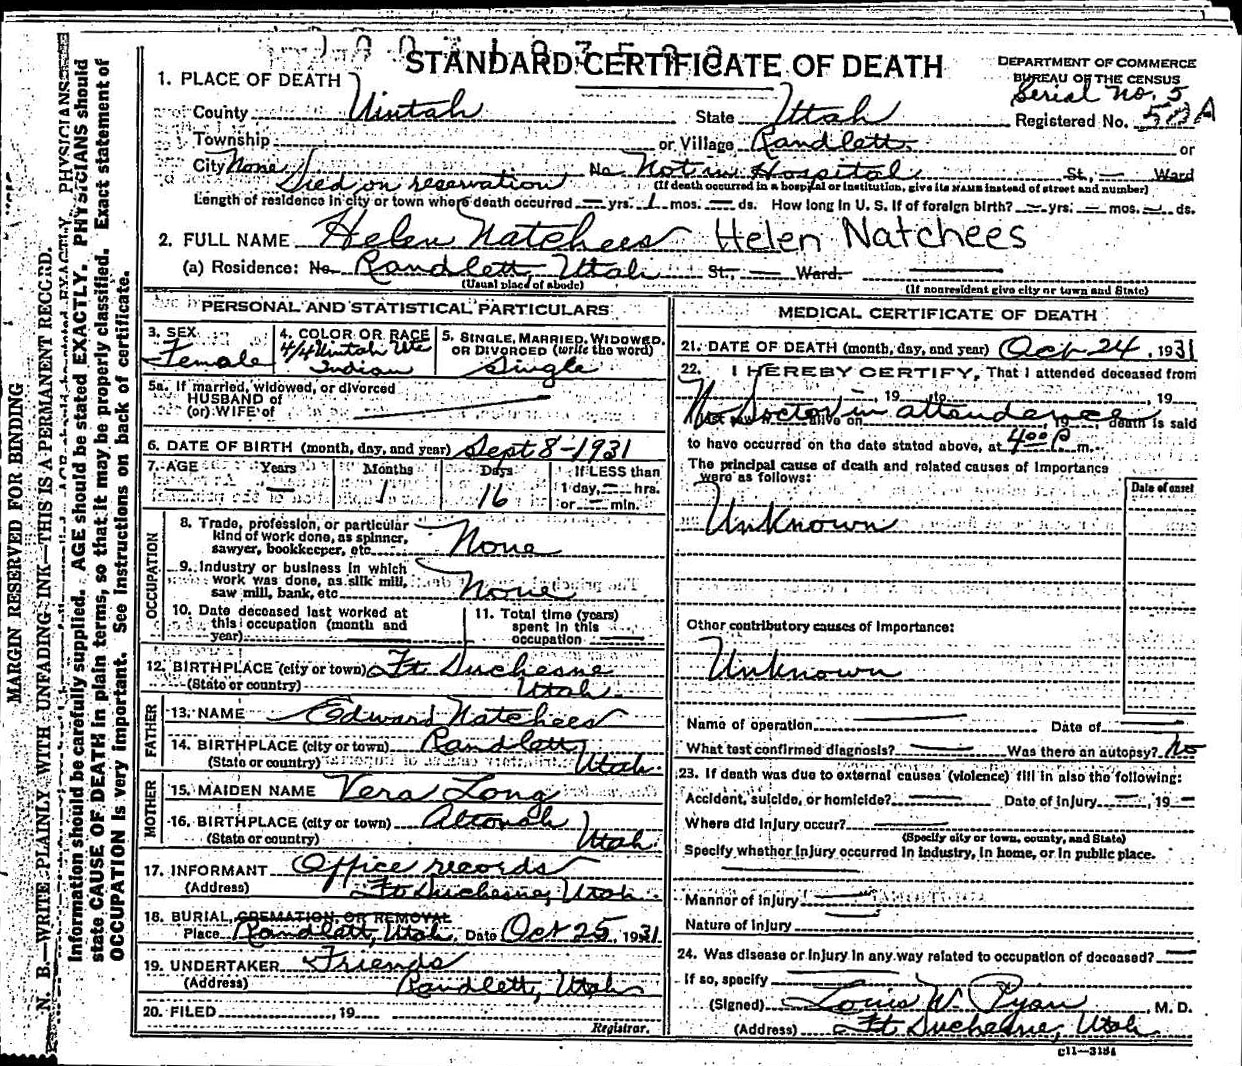 STANDARD CERTIFICATE OF DEATH
DEPARTMENT OF COMMERCE
BUREAU OF THE CENSUS
Serial No. 5
1. PLACE OF DEATH
County Uintah State Utah Registered No. 57A
Township or Village Randlett or
City None No. Not in Hospital St., Ward
Died on reservation (If death occurred in a hospital or institution, give its NAME instead of street and number)
Length of residence in city or town where death occurred — yrs. 1 mos. — ds. How long in U. S. if of foreign birth? — yrs. — mos. — ds.
2. FULL NAME Helen Natchees Helen Natchees
(a) Residence: No. Randlett, Utah St., Ward.
(Usual place of abode) (If nonresident give city or town and State)
PERSONAL AND STATISTICAL PARTICULARS
3. SEX 4. COLOR OR RACE 5. SINGLE, MARRIED, WIDOWED, OR DIVORCED (write the word)
Female 4/4 Uintah Ute Indian Single
5a. If married, widowed, or divorced
HUSBAND of
(or) WIFE of
6. DATE OF BIRTH (month, day, and year) Sept 8-1931
7. AGE Years Months Days If LESS than
— 1 16 1 day, — hrs.
or — min.
OCCUPATION
8. Trade, profession, or particular
kind of work done, as spinner,
sawyer, bookkeeper, etc. None
9. Industry or business in which
work was done, as silk mill,
saw mill, bank, etc. None
10. Date deceased last worked at
this occupation (month and
year)
11. Total time (years)
spent in this
occupation
12. BIRTHPLACE (city or town) Ft. Duchesne
(State or country) Utah
FATHER
13. NAME Edward Natchees
14. BIRTHPLACE (city or town) Randlett
(State or country) Utah
MOTHER
15. MAIDEN NAME Vera Long
16. BIRTHPLACE (city or town) Altonah
(State or country) Utah
17. INFORMANT Office records
(Address) Ft Duchesne, Utah
18. BURIAL, CREMATION, OR REMOVAL
Place Randlett, Utah. Date Oct 25, 1931
19. UNDERTAKER Friends
(Address) Randlett, Utah
20. FILED , 19
Registrar.
MEDICAL CERTIFICATE OF DEATH
21. DATE OF DEATH (month, day, and year) Oct 24, 1931
22. I HEREBY CERTIFY, That I attended deceased from
, 19 to , 19
No Doctor in attendance
alive on , 19 , death is said
to have occurred on the date stated above, at 4:00 P. m.
The principal cause of death and related causes of importance
were as follows: Date of onset
Unknown
Other contributory causes of importance:
Unknown
Name of operation Date of
What test confirmed diagnosis? Was there an autopsy? No
23. If death was due to external causes (violence) fill in also the following:
Accident, suicide, or homicide? Date of injury , 19
Where did injury occur?
(Specify city or town, county, and State)
Specify whether injury occurred in industry, in home, or in public place.
Manner of injury
Nature of injury
24. Was disease or injury in any way related to occupation of deceased?
If so, specify
(Signed) Louis W. Ryan, M. D.
(Address) Ft Duchesne, Utah
C11—3184
MARGIN RESERVED FOR BINDING
N. B.—WRITE PLAINLY WITH UNFADING INK—THIS IS A PERMANENT RECORD.
Information should be carefully supplied. AGE should be stated EXACTLY. PHYSICIANS should
state CAUSE OF DEATH in plain terms, so that it may be properly classified. Exact statement of
OCCUPATION is very important. See instructions on back of certificate.